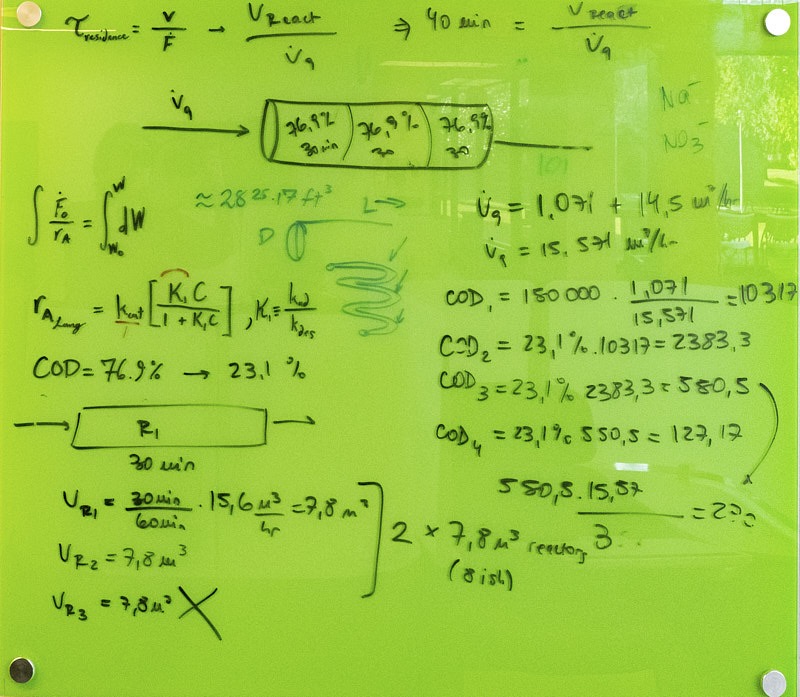 τ residence = V/Ḟ → V React / V̇q ⇒ 40 min = V React / V̇q
V̇q
76,9% 76,9% 76,9%
30min 30 30
Na⁻
NO₃⁻
101
∫ Ḟ₀/r_A = ∫_{W₀}^{W} dW
≈ 2825.17 ft³
L →
D
V̇q = 1,071 + 14,5 m³/hr
V̇q = 15,571 m³/hr
r_A Lang = k_cat [K₁C / 1 + K₁C], K₁ = k_ad / k_des
COD = 76.9% → 23,1 %
COD₁ = 150 000 · 1,071 / 15,571 = 10317
COD₂ = 23,1% · 10317 = 2383,3
COD₃ = 23,1% 2383,3 = 580,5
COD₄ = 23,1% 550,5 = 127,17
R₁
30 min
V_R1 = 30min / 60min · 15,6 m³/hr = 7,8 m³
V_R2 = 7,8 m³
V_R3 = 7,8 m³ X
2 × 7,8 m³ reactors
(8 ish)
550,5 · 15,57 / 3